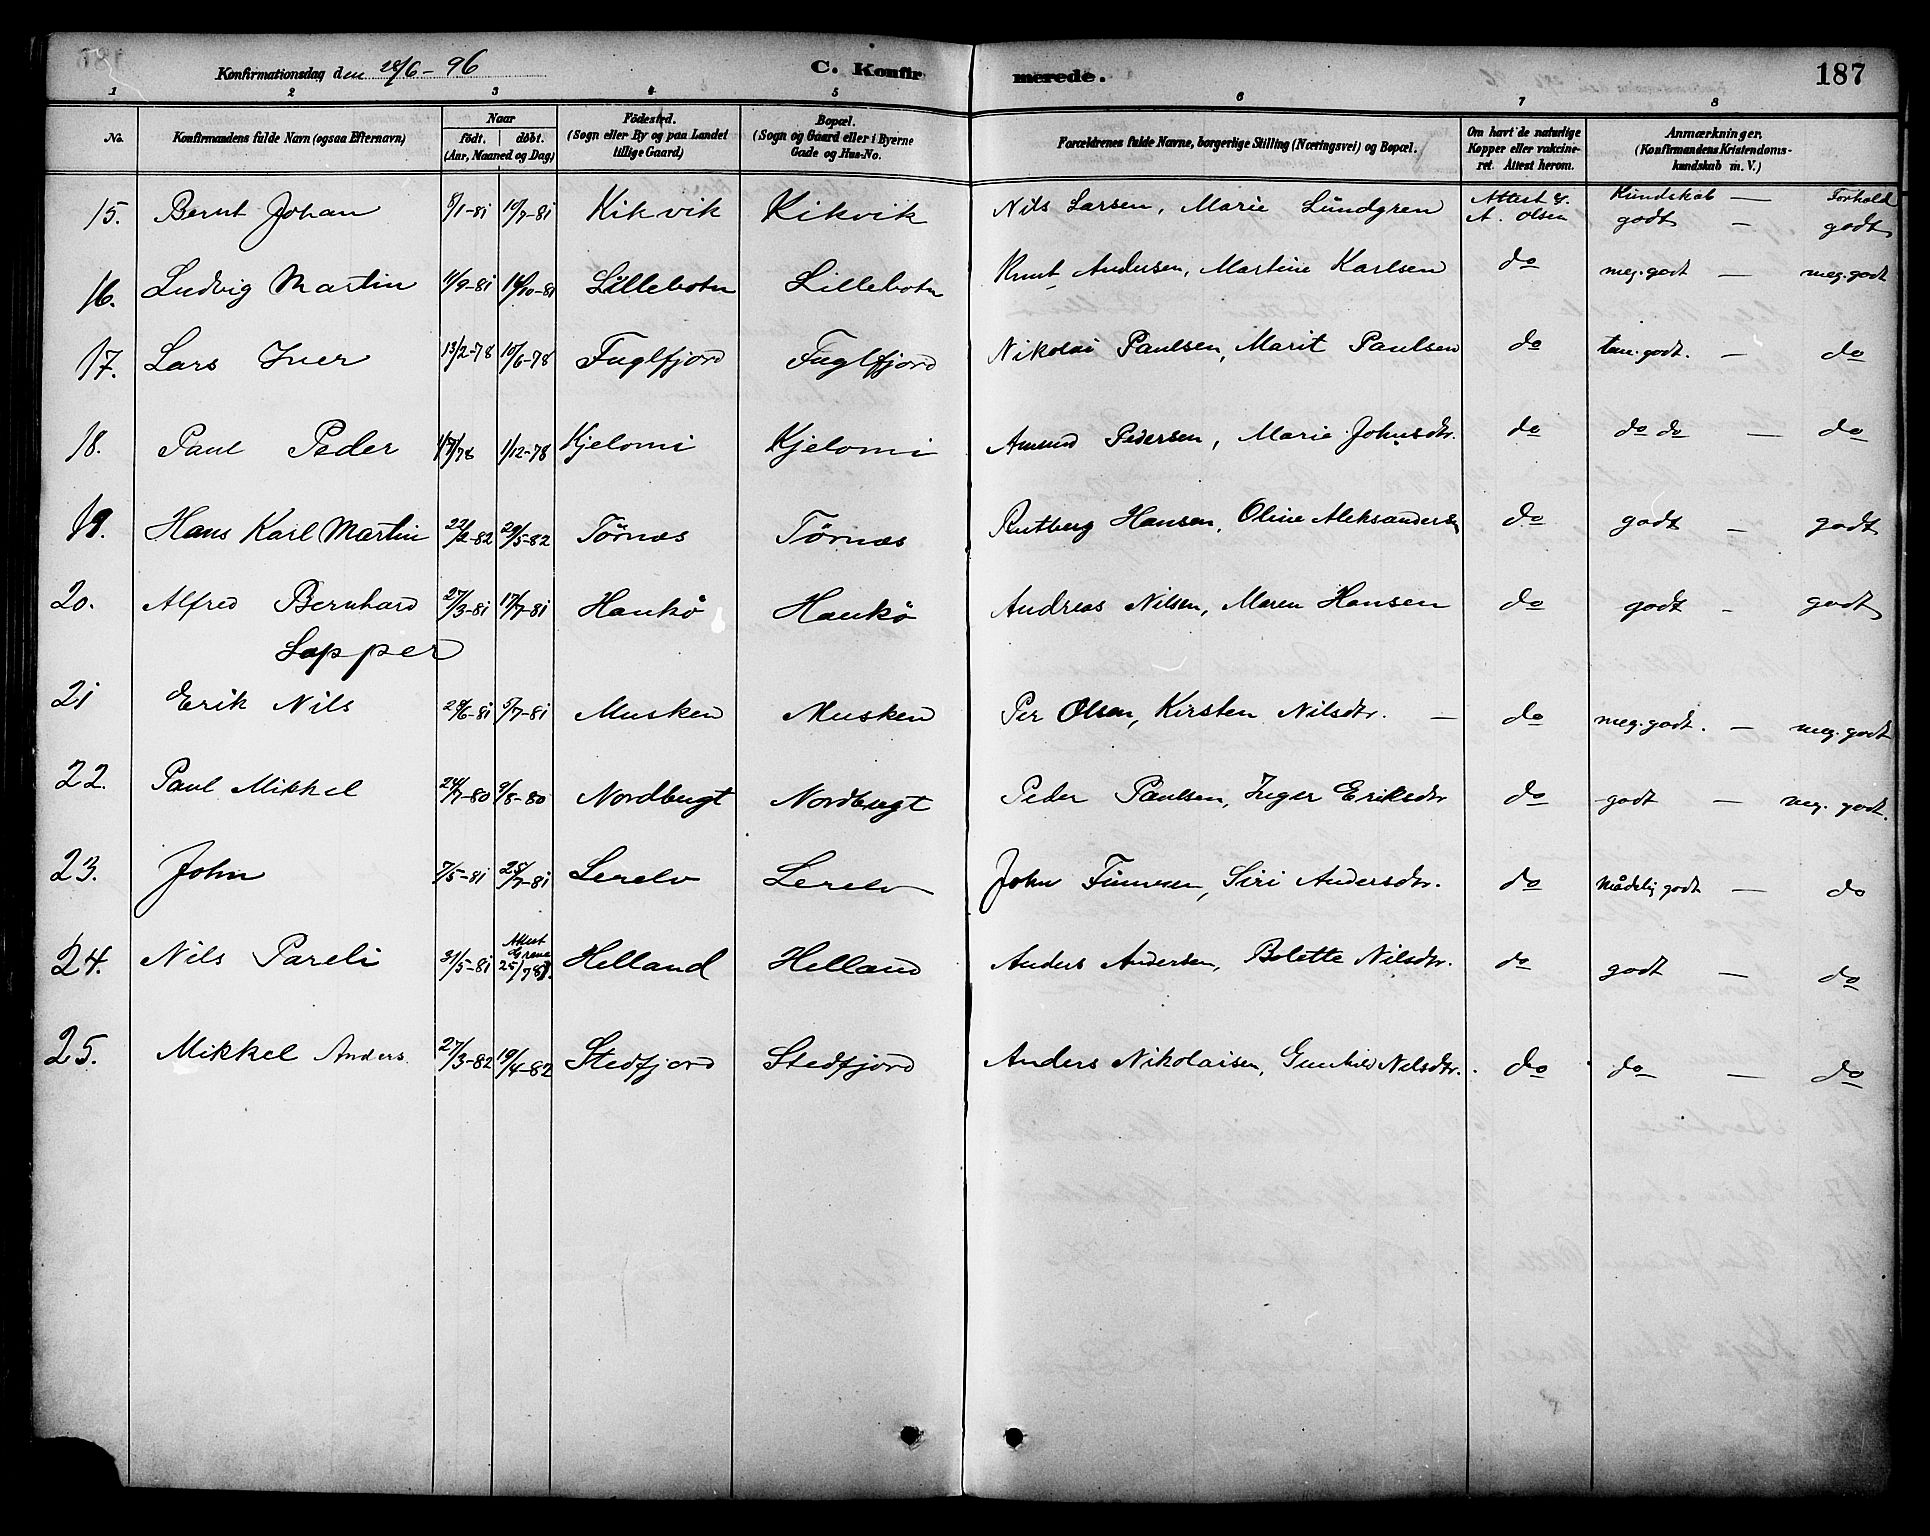 Konfirmationsdag den 28/6-96 C. Konfirmerede. 187
1 2 3 4 5 6 7 8
No. Konfirmandens fulde Navn (ogsaa Efternavn) Naar födt. döbt. (Aar, Maaned og Dag) Födested. (Sogn eller By og paa Landet tillige Gaard) Bopæl. (Sogn og Gaard eller i Byerne Gade og Hus-No. Forældrenes fulde Navne, borgerlige Stilling (Næringsvei) og Bopæl. Om havt de naturlige Kopper eller vakcineret. Attest herom. Anmærkninger. (Konfirmandens Kristendomskundskab m. V.)
15. Bernt Johan 8/1-81 10/7-81 Kikvik Kikvik Nils Larsen, Marie Lundgren Attest A. Olsen Kundskab godt — Forhold godt
16. Ludvig Martin 11/9-81 16/10-81 Lillebotn Lillebotn Knut Andersen, Martine Karlsen do meg. godt — meg. godt
17. Lars Iver 13/2-78 10/6-78 Fuglfjord Fuglfjord Nikolai Paulsen, Marit Paulsen do tem. godt. — do
18. Paul Peder 1/12-78 Kjelomi Kjelomi Amund Pedersen, Marie Johnsdtr. do do do — do
19. Hans Karl Martin 22/2-82 29/5-82 Tørnæs Tørnæs Rutberg Hansen, Oline Aleksandersen do godt — godt
20. Alfred Bernhard 27/3-81 17/7-81 Haukø Haukø Andreas Nilsen, Maren Hansen do godt — godt
Lapper
21 Erik Nils 28/6-81 5/7-81 Musken Musken Per Olsen, Kirsten Nilsdtr. — do meg. godt. — meg. godt
22. Paul Mikkel 24/7-80 9/8-80 Nordbugt Nordbugt Peder Paulsen, Inger Eriksdtr do godt — meg. godt.
23. John 7/5-81 25/7-81 Lerelv Lerelv John Finnesen, Siri Andersdtr. do mådelig godt — do
24. Nils Pareli 31/5-81 Attest 25/7 81. Helland Helland Anders Andersen, Bolette Nilsdtr. do godt — do
25. Mikkel Anders 27/3-82 19/4-82 Stedfjord Stedfjord Anders Nikolaisen, Gunhild Nilsdtr. do do — do